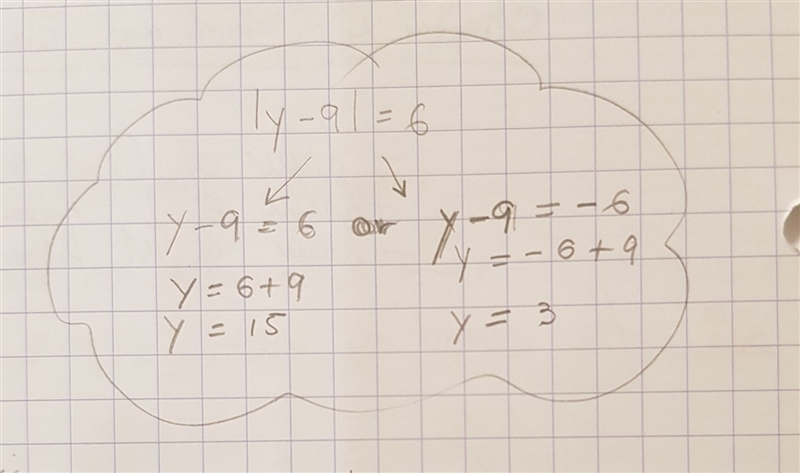 |y-9| = 6
y-9 = 6 or y-9 = -6
y = 6+9
y = 15
y = -6+9
y = 3